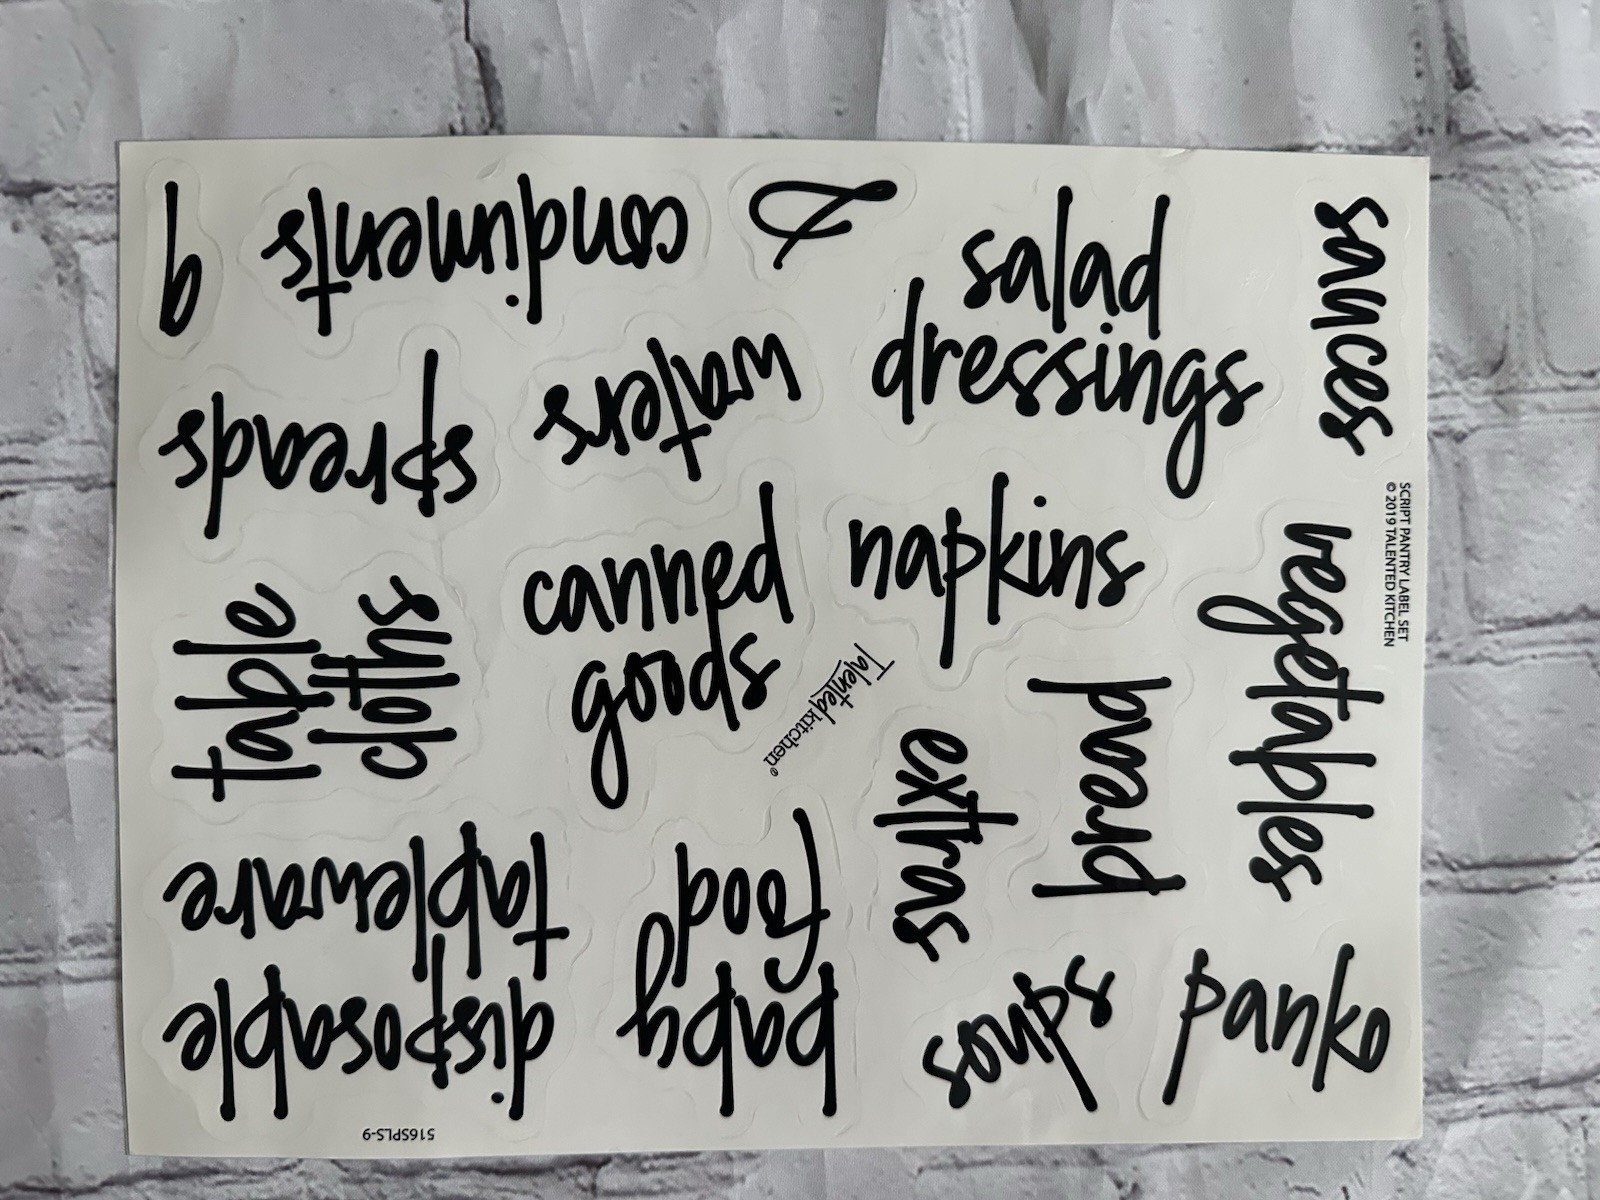 condiments
&
salad
dressings
sauces
spreads
waters
napkins
SCRIPT PANTRY LABEL SET
© 2019 TALENTED KITCHEN
vegetables
table
cloths
canned
goods
Talented kitchen®
bread
extras
disposable
tableware
baby
food
soups
panko
516SPLS-9